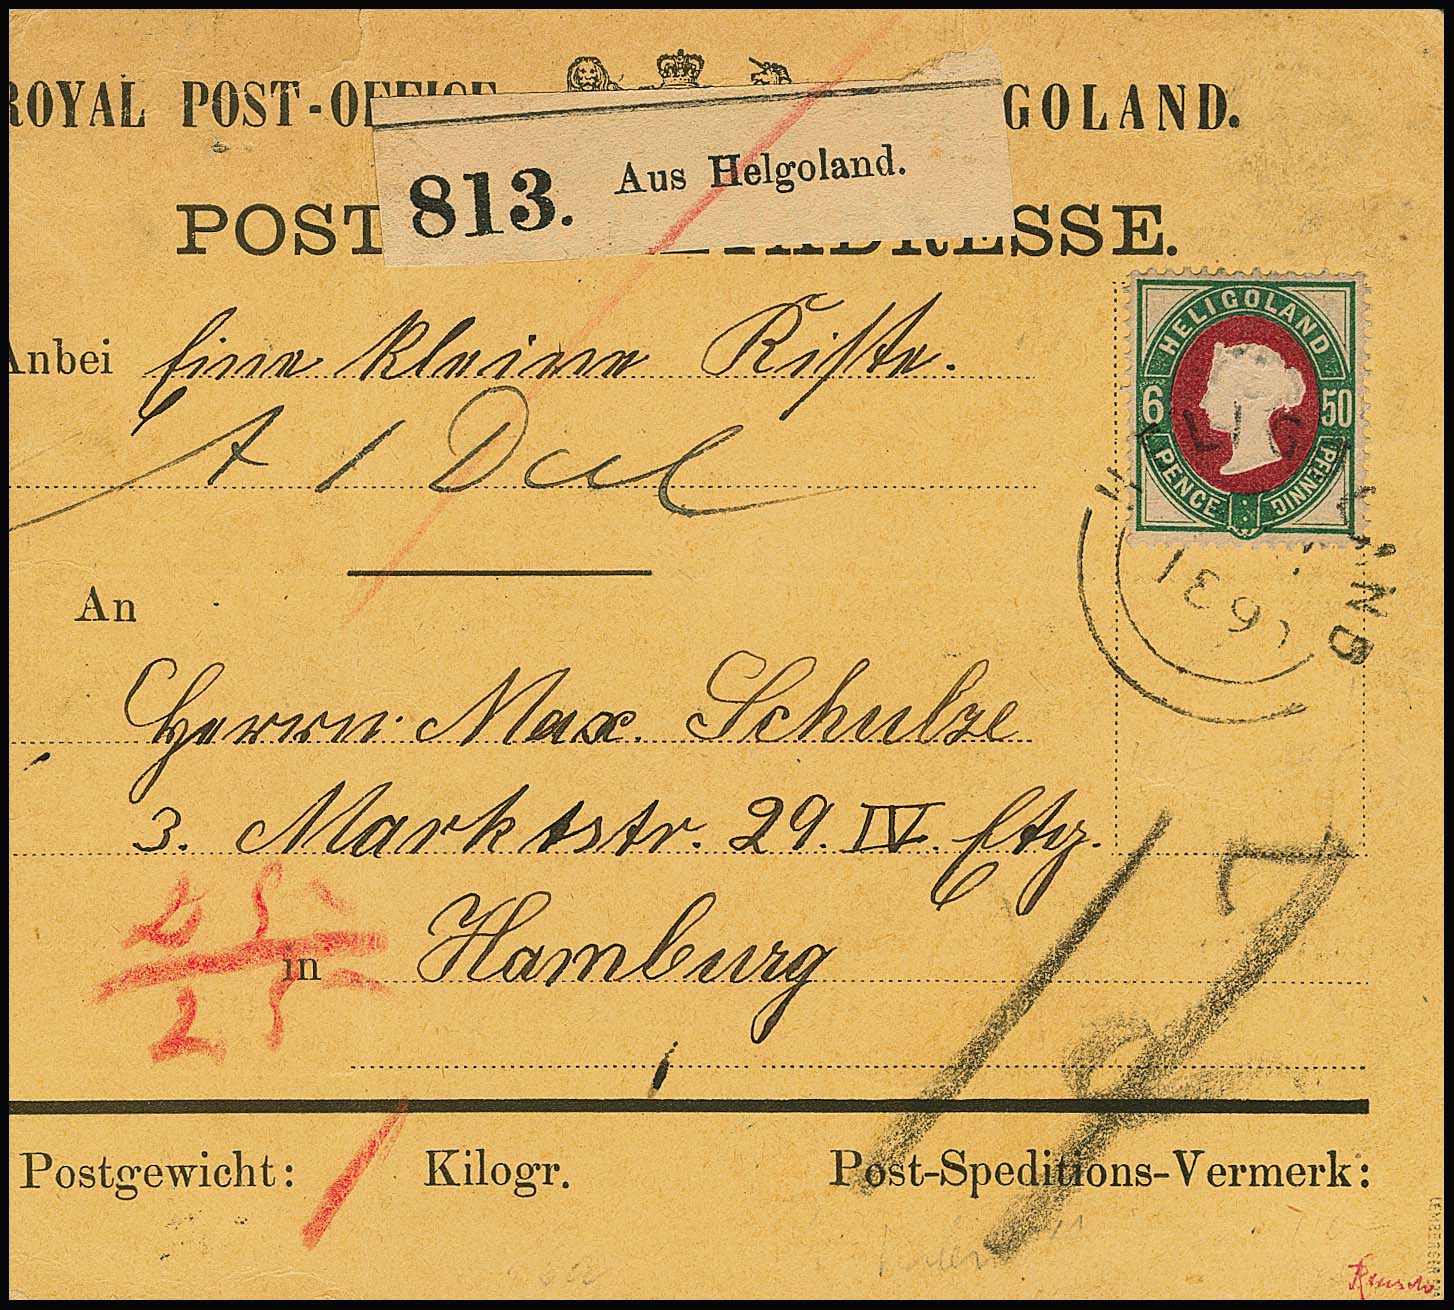 ROYAL POST-OFFICE GOLAND.
813. Aus Helgoland.
POST ADRESSE.
Anbei Eine kleine Kiste.
HELIGOLAND
6 50
PENCE PFENNIG
An
Herrn Max. Schulze
3. Marktstr. 29. IV. Etg.
in Hamburg
Postgewicht: 1 Kilogr.
Post-Speditions-Vermerk: